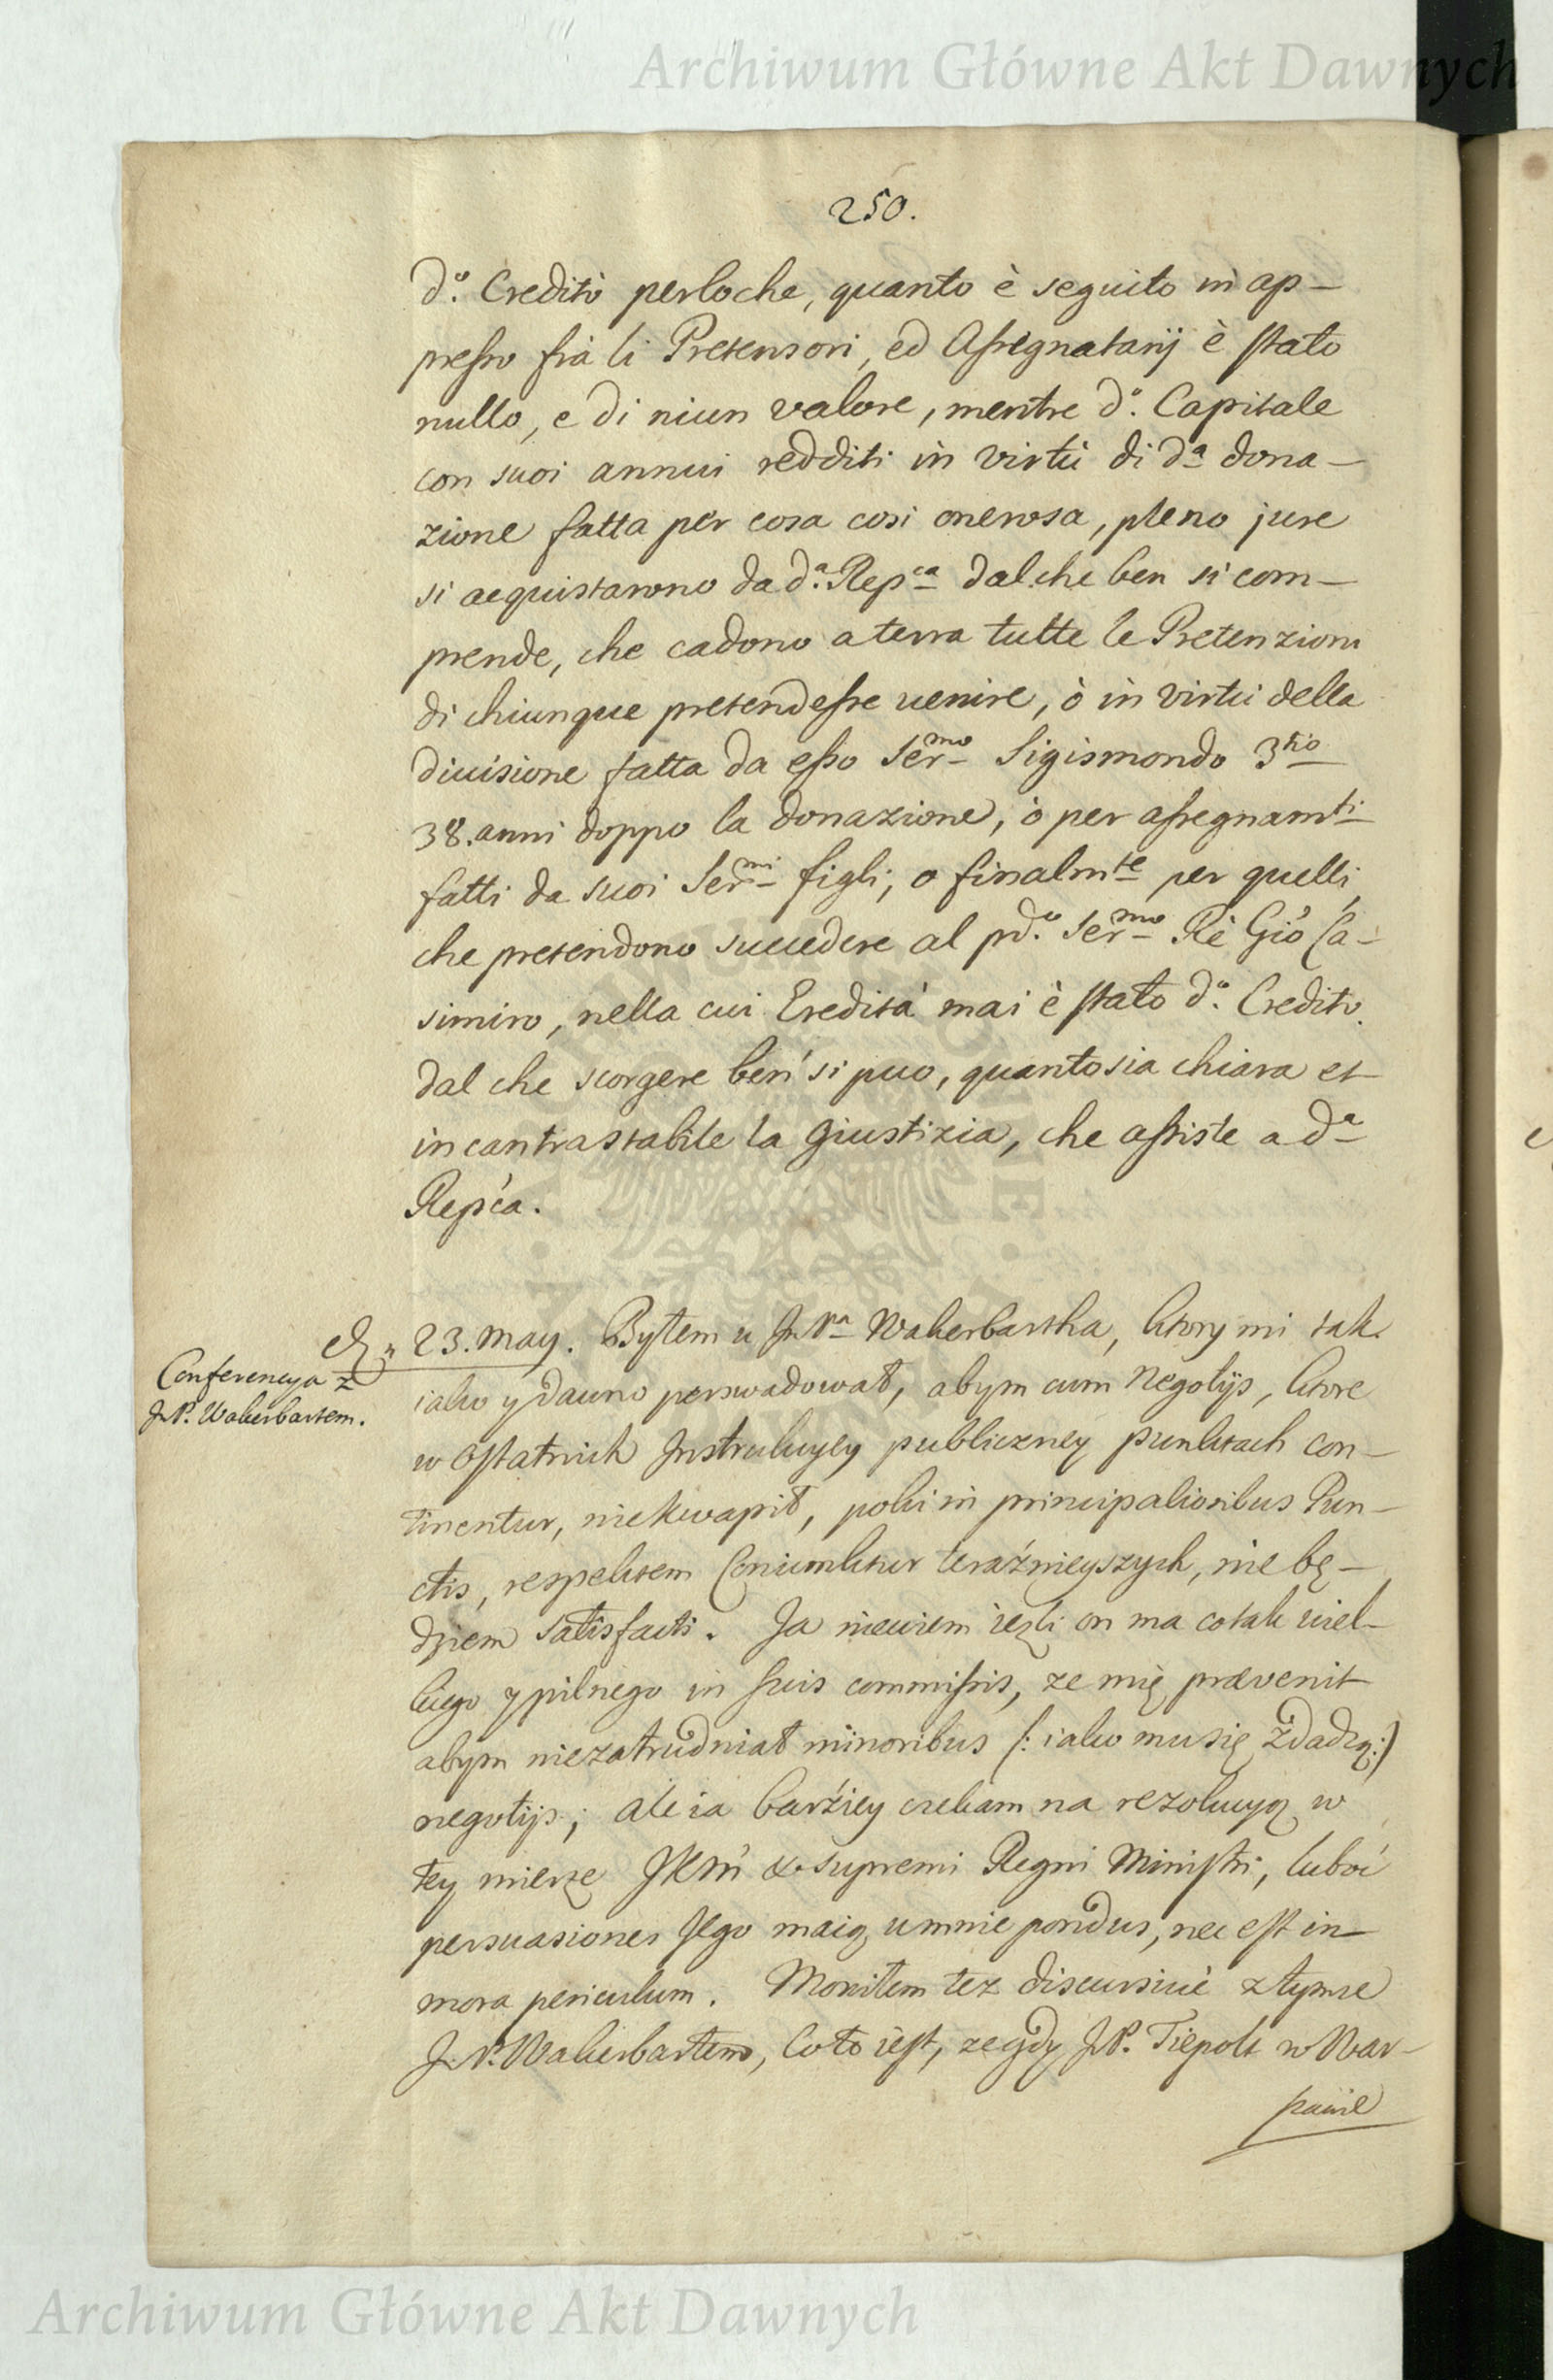 Archiwum Główne Akt Dawnych
250.
d.º Credito perloche, quanto è seguito in ap-
presso frà li Pretensori, ed Assegnatarij è stato
nullo, e di niun valore, mentre d.º Capitale
con suoi annui redditi in virtù di dª dona-
zione fatta per cosa così onerosa, pleno jure
si acquistarono da d.ª Repca dal che ben si com-
prende, che cadono a terra tutte le Pretenzioni
di chiunque pretendesse uenire, ò in virtù della
diuisione fatta da esso Sermo Sigismondo 3tio
38. anni doppo la donazione, ò per assegnamti
fatti da suoi Sermi figli, o finalmte per quelli,
che pretendono succedere al pd.º Sermo Rè Gio Ca-
simiro, nella cui Eredità mai è stato d.º Credito.
dal che scorgere ben si puo, quanto sia chiara et
incantrastabile la Giustizia, che assiste a dª
Repca.
23. May. Byłem u J.Pª Wakerbartha, ktory mi tak
Conferencya z
J.P. Wakerbartem.
iako y dawno perswadował, abym cum Negotijs, ktore
w Ostatnich Jnstrukcyey publiczney punktach con-
tinentur, niekwapił, poki in principalioribus Pun-
ctis, respektem Coniunktur teraźnieyszych, nie bę-
dziem satisfacti. Ja niewiem ieżli on ma co tak wiel-
kiego y pilnego in suis commissis, ze mię prævenit
abym niezatrudniał minoribus (: iako mu się zdadzą :)
negotijs; ale ia barźiey czekam na rezolucyą w
tey mierze JKM & supremi Regni Ministri, luboć
persuasiones Jego maią u mnie pondus, nec est in
mora periculum. Mowiłem tez discursivè z tymze
J.P. Wakerbartem, co to iest, ze gdy J.P. Tiepoli w War-
szawie
Archiwum Główne Akt Dawnych